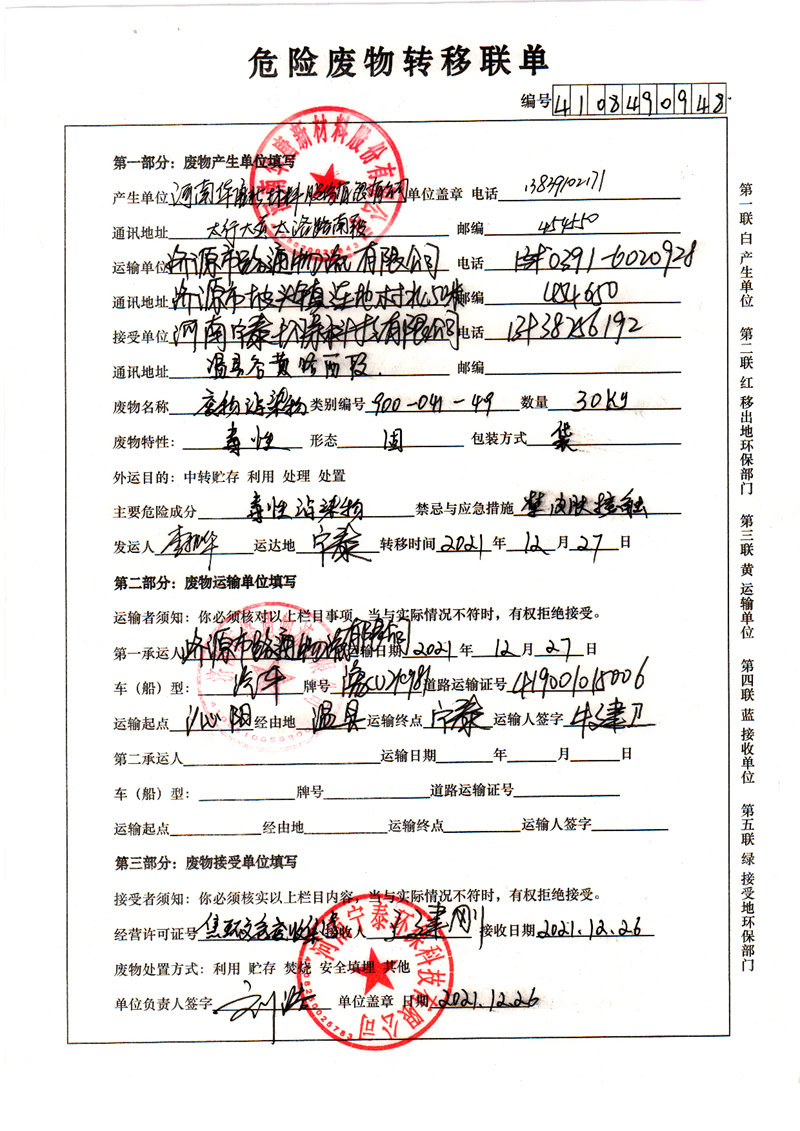 危险废物转移联单
编号 4108490948
第一部分：废物产生单位填写
产生单位 河南华 新材料股份有限公司 单位盖章 电话 13839102171
通讯地址 太行大 南段 邮编 454550
运输单位 济源市路通物流有限公司 电话 0391-6020928
通讯地址 济源市坡头镇连地村 邮编 454650
接受单位 河南宁泰环保科技有限公司 电话
通讯地址 温县谷黄路西段 邮编
废物名称 废物沾染物 类别编号 900-041-49 数量 30Kg
废物特性： 毒性 形态 固 包装方式 袋
外运目的：中转贮存 利用 处理 处置
主要危险成分 毒性沾染物 禁忌与应急措施 禁皮肤接触
发运人 运达地 宁泰 转移时间 2021 年 12 月 27 日
第二部分：废物运输单位填写
运输者须知：你必须核对以上栏目事项，当与实际情况不符时，有权拒绝接受。
第一承运人 济源市路通物流有限公司 运输日期 2021 年 12 月 27 日
车（船）型： 汽车 牌号 道路运输证号 419001015006
运输起点 沁阳 经由地 温县 运输终点 宁泰 运输人签字
第二承运人 运输日期 年 月 日
车（船）型： 牌号 道路运输证号
运输起点 经由地 运输终点 运输人签字
第三部分：废物接受单位填写
接受者须知：你必须核实以上栏目内容，当与实际情况不符时，有权拒绝接受。
经营许可证号 接收人 接收日期 2021.12.26
废物处置方式：利用 贮存 焚烧 安全填埋 其他
单位负责人签字 刘浩 单位盖章 日期 2021.12.26
河南宁泰环保科技有限公司
第一联 白 产生单位
第二联 红 移出地环保部门
第三联 黄 运输单位
第四联 蓝 接收单位
第五联 绿 接受地环保部门